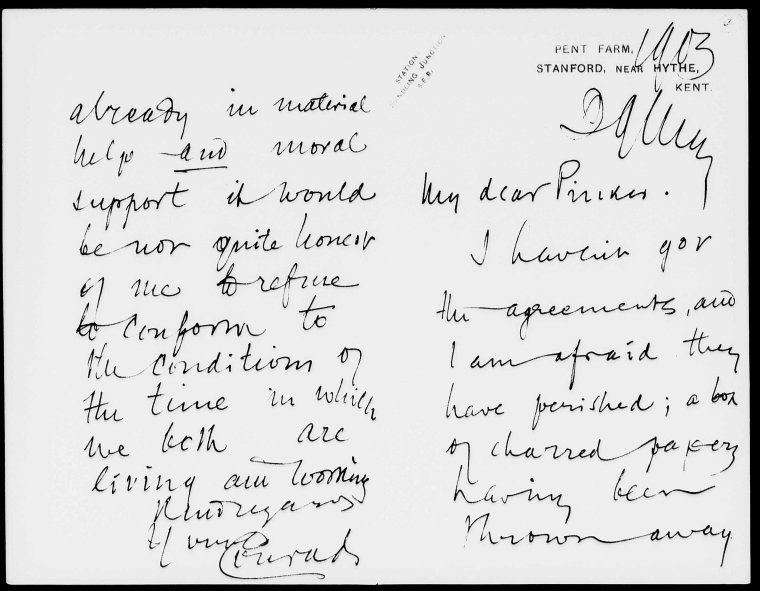 1903
PENT FARM,
STANFORD, NEAR HYTHE,
KENT.
STATION
SANDLING JUNCTION
S.E.R.
My dear Pinker.
I haven't got
the agreements, and
I am afraid they
have perished; a box
of charred papers
having been
thrown away
already in material
help and moral
support it would
be not quite honest
of me to refuse
to conform to
the conditions of
the time in which
we both are
living and working
Kind regards
Yours
Conrad